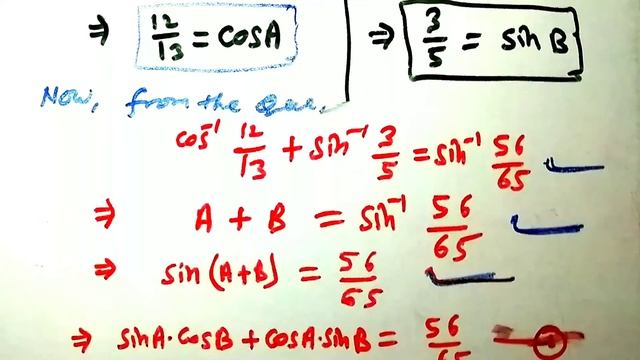 ⇒ 12/13 = cosA
⇒ 3/5 = sin B
Now, from the Que,
cos⁻¹ 12/13 + sin⁻¹ 3/5 = sin⁻¹ 56/65
⇒ A + B = sin⁻¹ 56/65
⇒ sin(A+B) = 56/65
⇒ sinA·cosB + cosA·sinB = 56/65